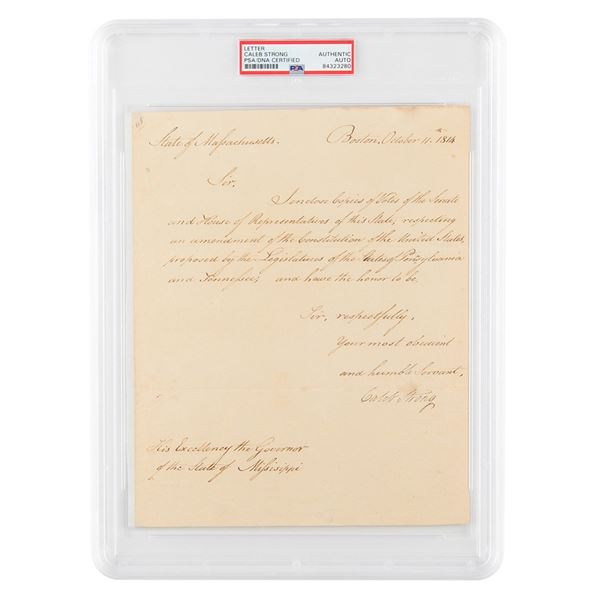 LETTER
CALEB STRONG
PSA/DNA CERTIFIED
AUTHENTIC
AUTO
84323280
PSA
State of Massachusetts.
Boston, October 11.th 1814
Sir,
I enclose Copies of Votes of the Senate
and House of Representatives of this State, respecting
an amendment of the Constitution of the United States,
proposed by the Legislatures of the States of Pensylvania
and Tennessee; and have the honor to be,
Sir, respectfully,
Your most obedient
and humble Servant,
Caleb Strong
His Excellency the Governor
of the State of Missisippi